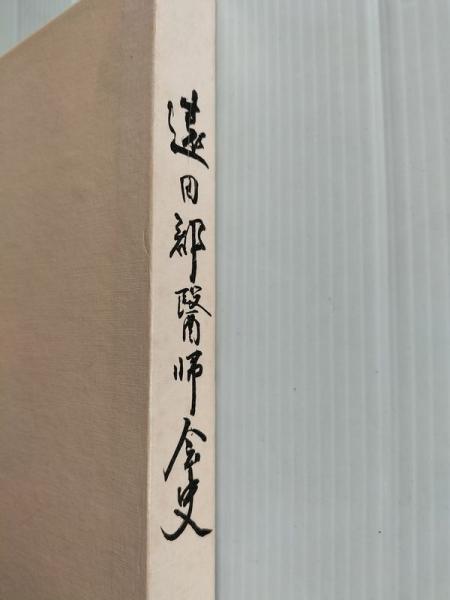 遠田郡醫師会史